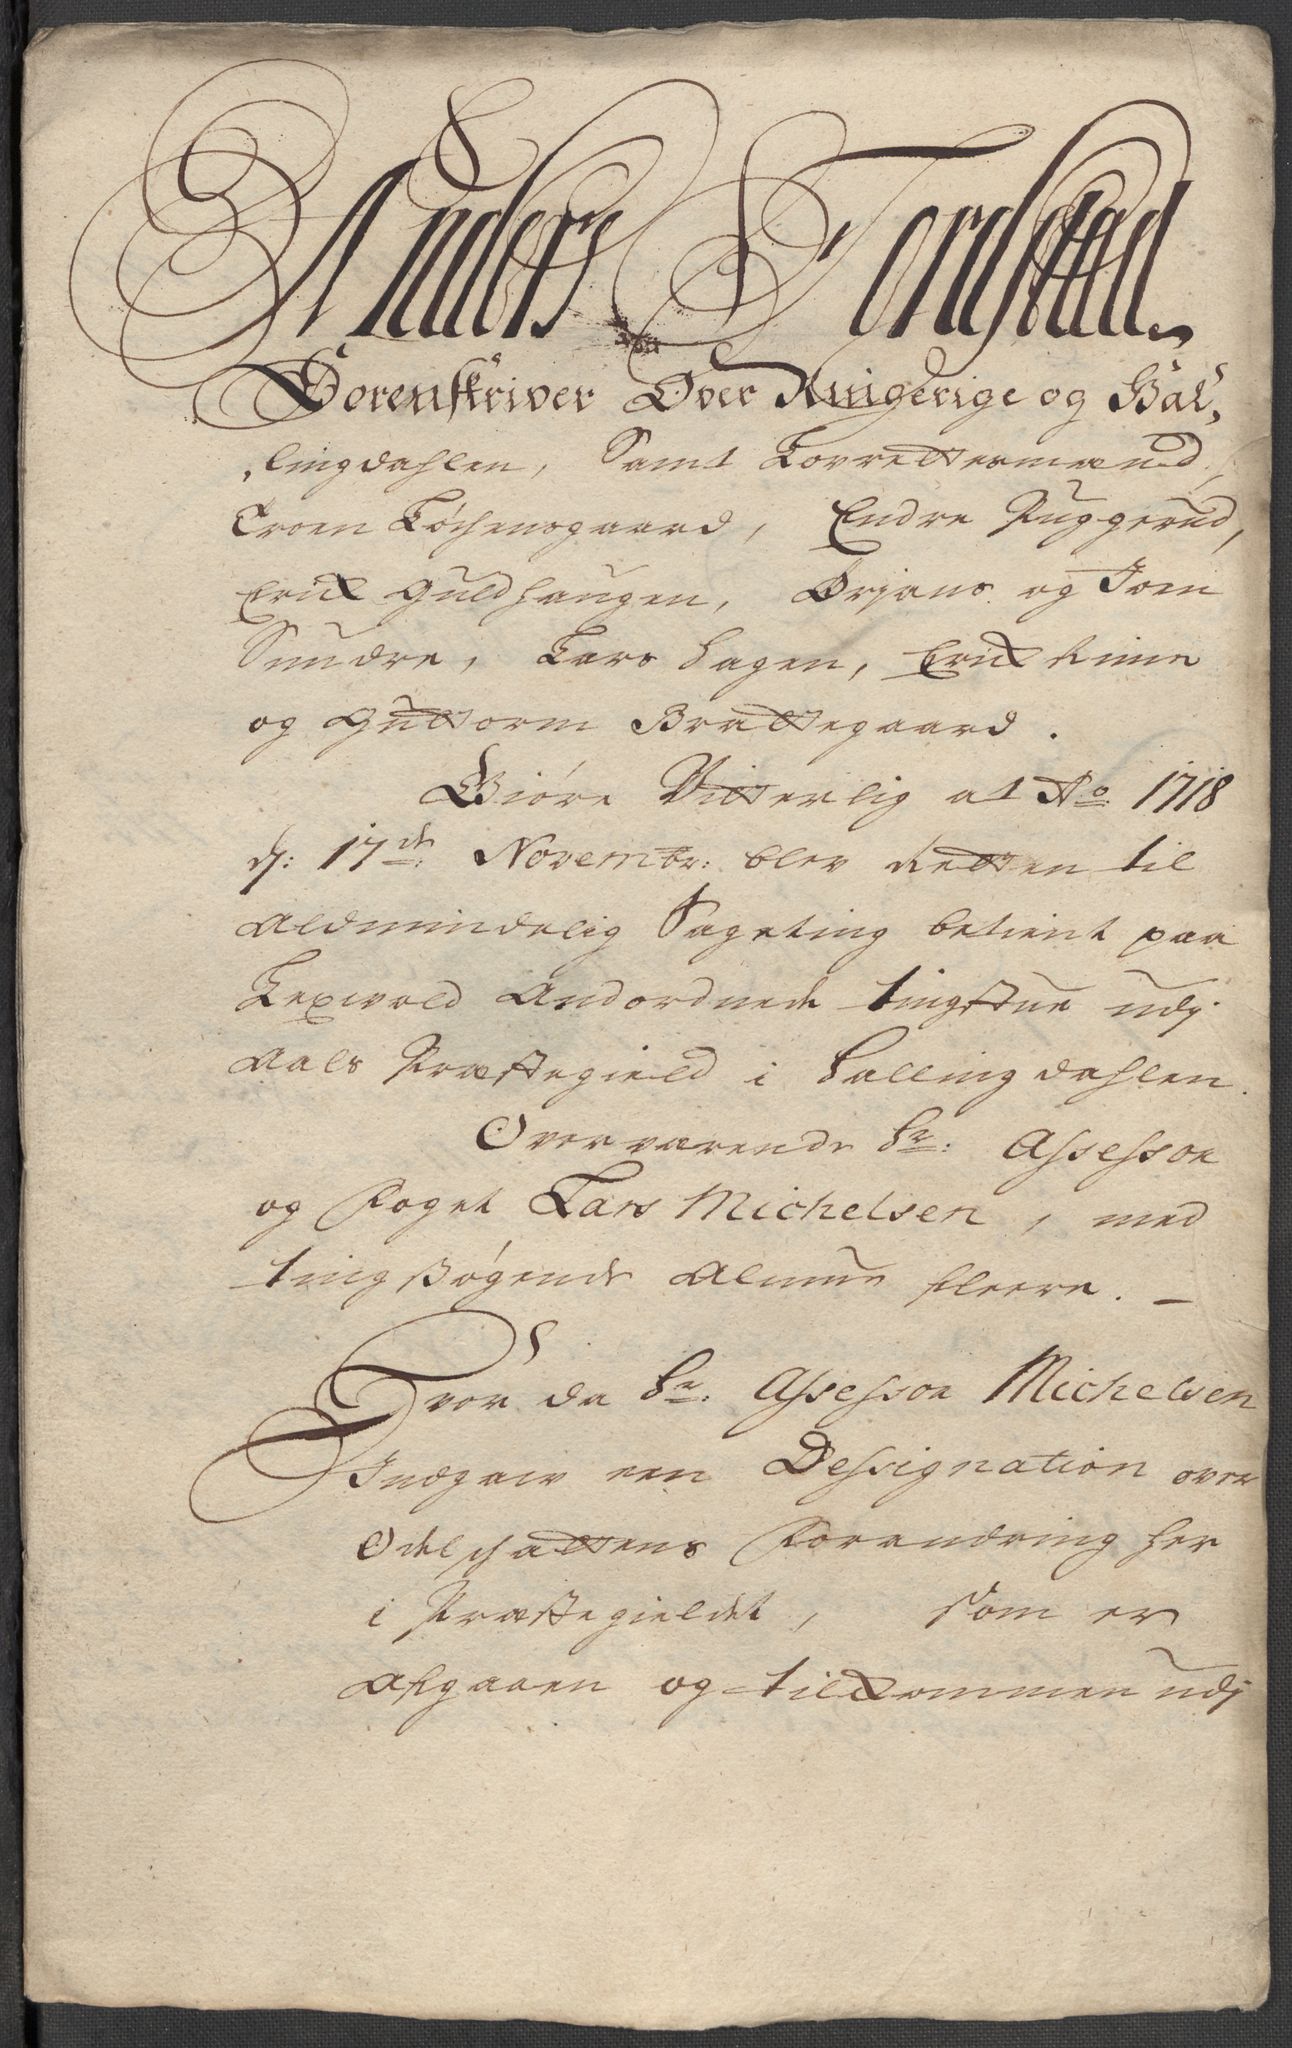 Anders Tordstad
Sorenskriver Over Ringerige og Hal,
,lingdahlen, Samt Lovrettesmænd,
Troen Løchensgaard, Endre Ruggerud,
Erik Guldhaugen, Ørjans og Joen
Sundre, Lars Hagen, Erik Rime
og Guttorm Brattegaard.
Giøre Vitterlig at Ao 1718
d: 17de: Novembr: blev Retten til
Aldmindelig Sageting betient paa
Lexvold Andordnede tingstue udj
Aals Præstegield i Hallingdahlen.
Overværende Hr: Assessor
og Foget Lars Michelsen, med
tingsøgende Almue fleere. –
Hvor da Hr: Assessor Michelsen
Indgaiv een Dessignation over
Odelschattens Forandring her
i Præstegieldet, som er
Afgaaen og tilkommen udj